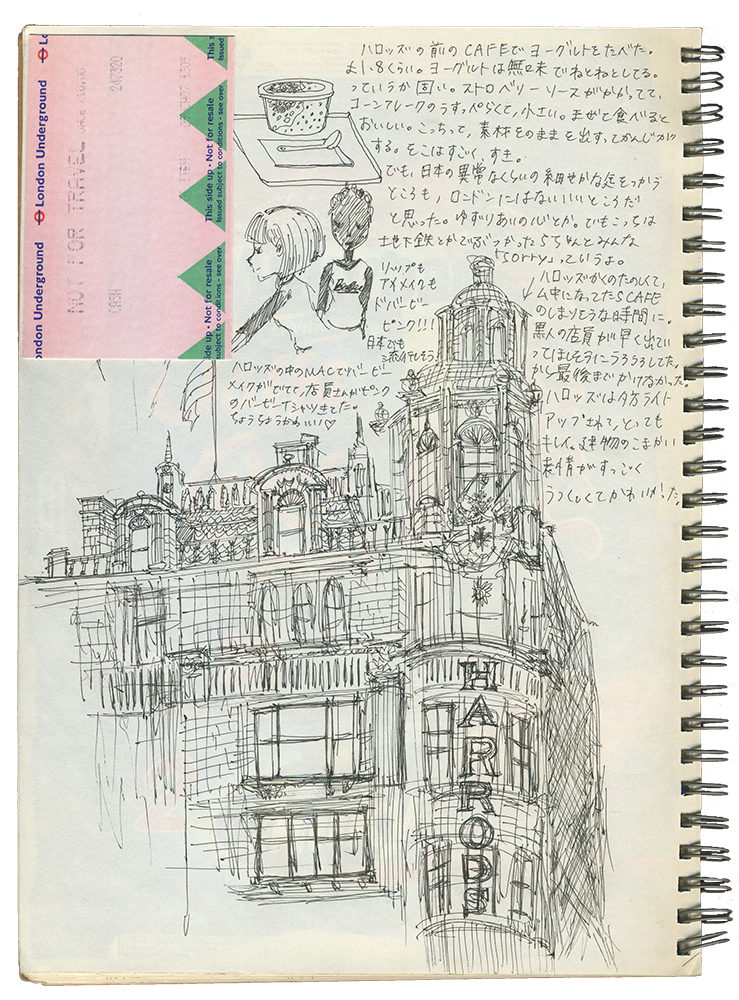 ハロッズの前のCAFEでヨーグルトをたべた。
£1.8くらい。ヨーグルトは無味でねとねとしてる。
っていうか固い。ストロベリーソースがかかってて、
コーンフレークのうすっぺらくて、小さい。まぜて食べると
おいしい。こっちって、素材そのままを出すってかんじが
する。そこはすごく すき。
でも、日本の異常なくらいの細やかな
ところも、ロンドンにはないいいところだ
と思った。ゆずりあいの心とか。でもこっちは
地下鉄とかでぶつかったらちゃんとみんな
「sorry」っていうよ。
リップも
アイメイクも
ドバービー
ピンク!!!
日本でも
ハロッズの中のMACでバービー
メイクがでてて、店員さんがピンク
のバービーTシャツきてた。
ちょうちょうかわいい♡
ハロッズかくのたのしくて、
ム中になってたらCAFE
のしまりそうな時間に。
黒人の店員が早く出てい
ってほしそうにうろうろしてた。
から最後までかけなかった。
ハロッズは夕方ライト
アップされて、とっても
キレイ。建物のこまかい
表情がすっごく
うつくしくてかわいい!た。
HARRODS
London Underground
London Underground
NOT FOR TRAVEL
CASH
247320
This side up - Not for resale
Issued subject to conditions - see over
This side up - Not for resale
Issued subject to conditions - see over
This s
Issued